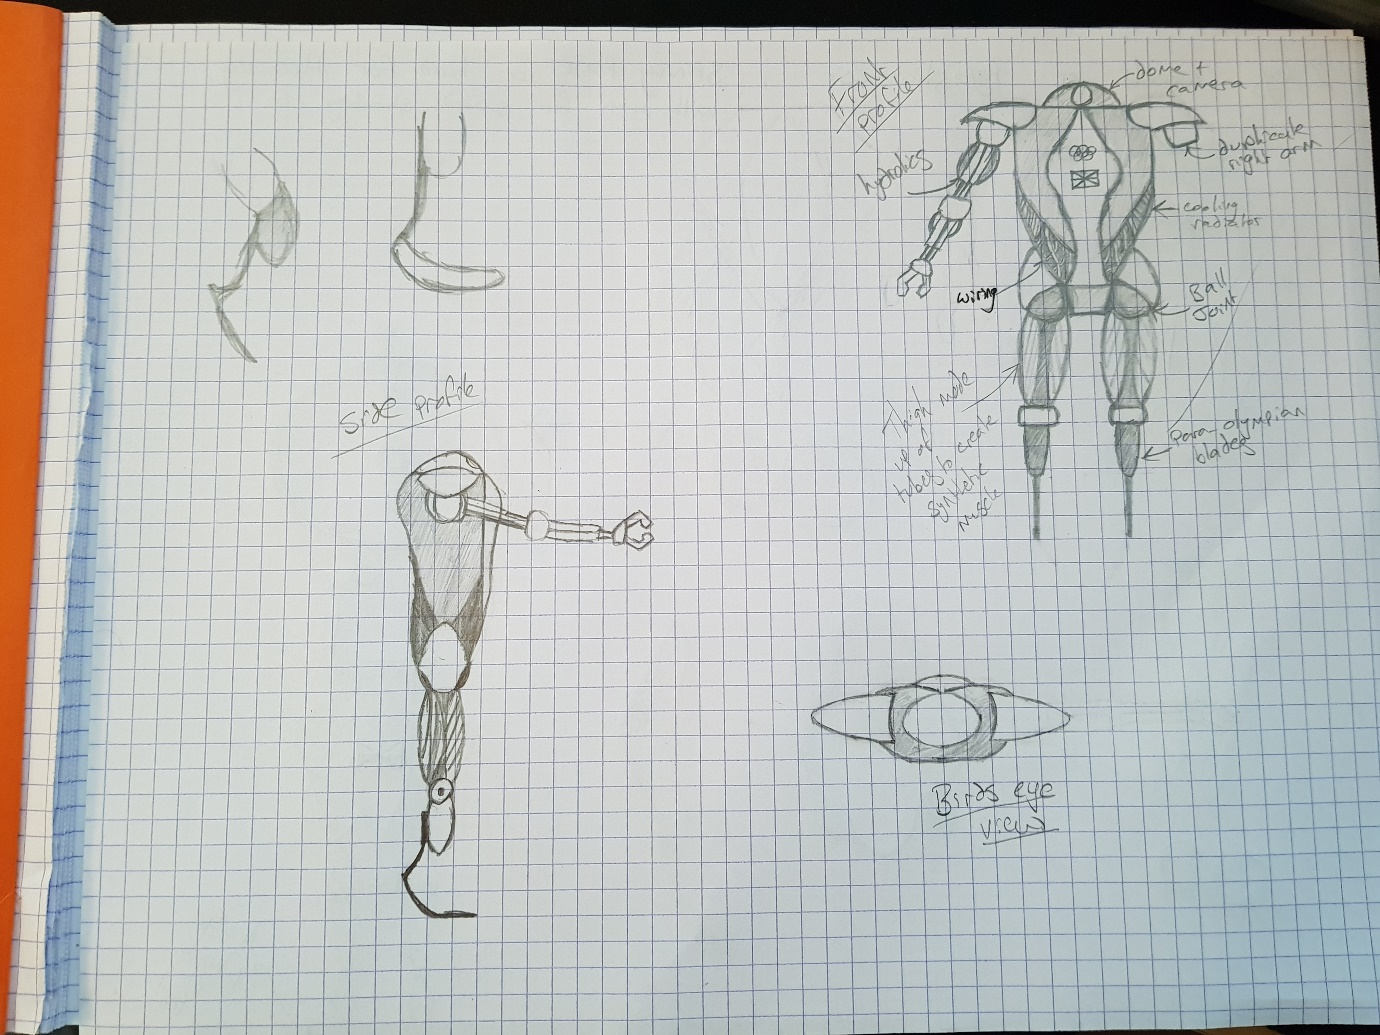 Front
profile
dome +
camera
duplicate
right arm
hydrolics
cooling
radiator
wiring
Ball
Joint
Thigh made
up of
tubes to create
synthetic
muscle
Para-olympian
blades
Side profile
Birds eye
view